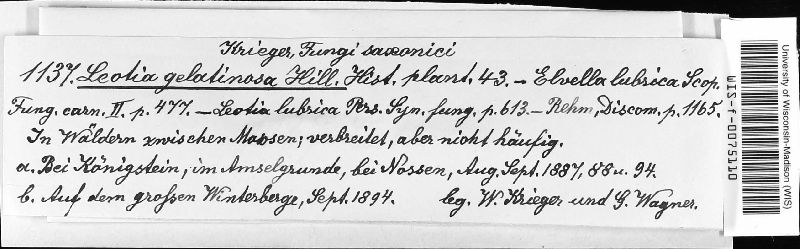 Krieger, Fungi saxonici
1137. Leotia gelatinosa Hill. Hist. plant. 43. – Elvella lubrica Scop.
Fung. carn. II. p. 477. – Leotia lubrica Pers. Syn. fung. p. 613. – Rehm, Discom. p. 1165.
In Wäldern zwischen Moosen; verbreitet, aber nicht häufig.
a. Bei Königstein, im Amselgrunde, bei Nossen, Aug. Sept. 1887, 88 u. 94.
b. Auf dem großen Winterberge, Sept. 1894. leg. W. Krieger und G. Wagner.
University of Wisconsin-Madison (WIS)
WIS-f-0075110